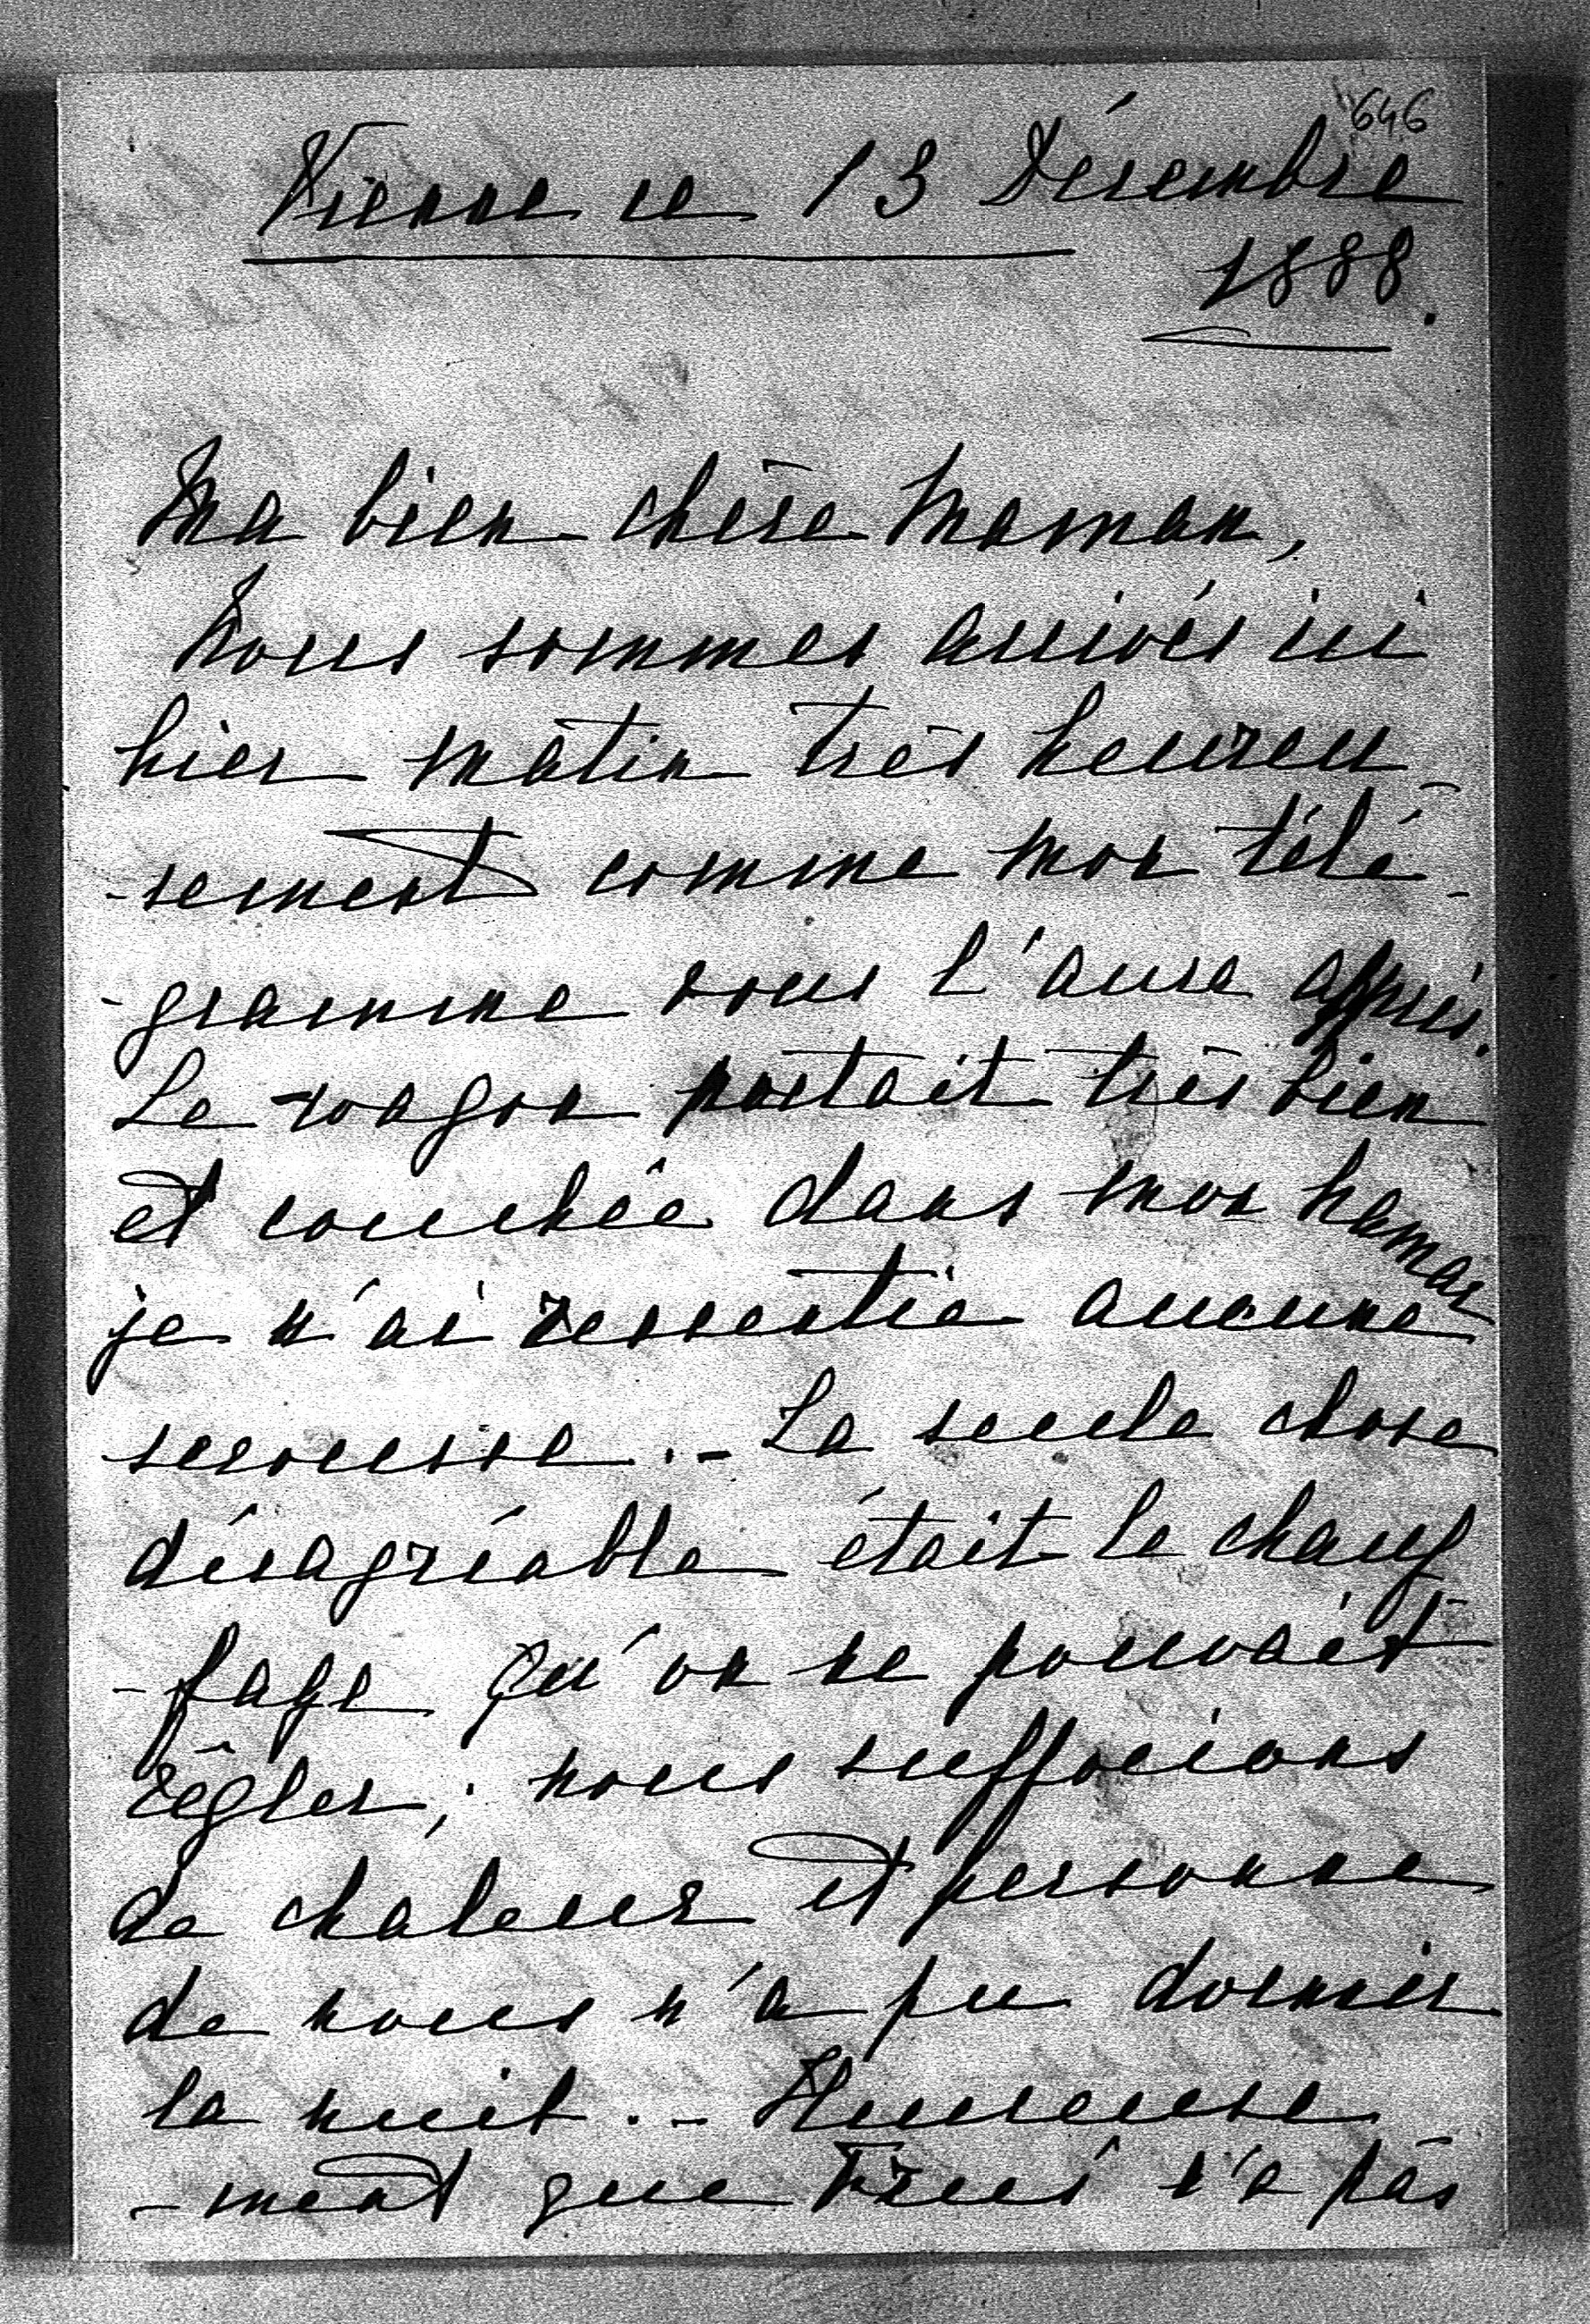 646
Vienne ce 13 Décembre
1888.
Ma bien chère Maman,
Nous sommes arrivés ici
hier matin très heureu-
-sement comme mon télé-
-gramme vous l'aura appris.
Le wagon portait très bien
et couchée dans mon hamac
je n'ai ressentie aucune
secousse. - La seule chose
désagréable était le chauf
-fage qu'on ne pouvait
règler; nous suffocions
de chaleur et personne
de nous n'a pu dormir
la nuit. - Heureuse
-ment que n'a pas